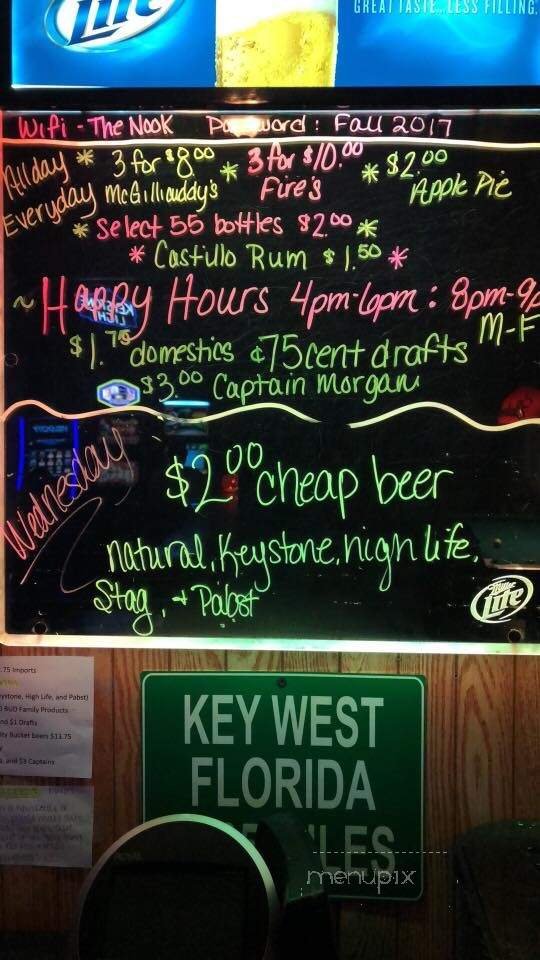 Lite
GREAT TASTE...LESS FILLING.
WiFi - The Nook Password: Fall 2017
All day Everyday
* 3 for $8.00 * 3 for $10.00 * $2.00
McGilliauddy's Fire's Apple Pie
* Select 55 bottles $2.00 *
* Castillo Rum $1.50 *
~ Happy Hours 4pm-6pm : 8pm-9p
M-F
$1.75 domestics & 75 cent drafts
$3.00 Captain Morgan
Wednesday
$2.00 cheap beer
natural, Keystone, high life,
Stag, + Pabst
Miller Lite
.75 Imports
ystone, High Life, and Pabst)
BUD Family Products
nd $1 Drafts
ity Bucket beers $13.75
s, and $3 Captains
KEY WEST
FLORIDA
LES
menupix